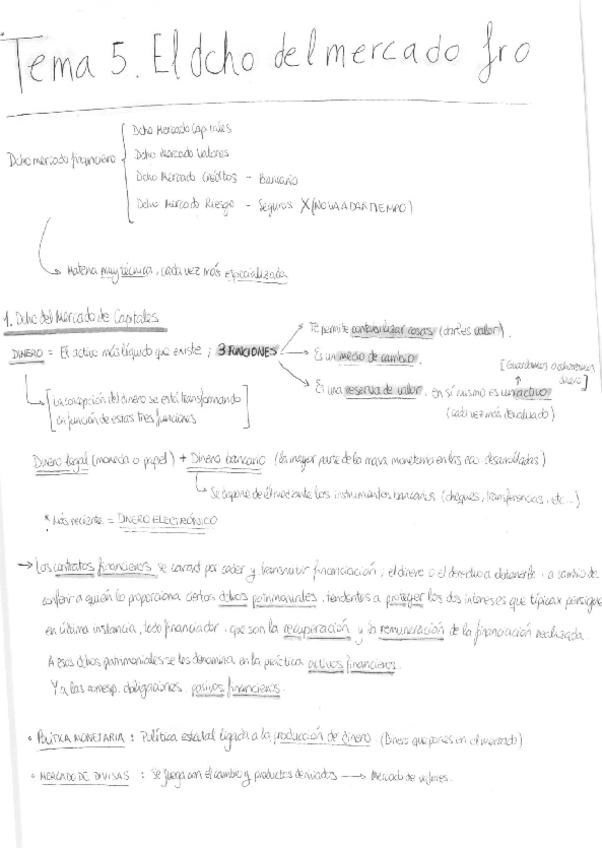 Tema 5. El dcho del mercado fro
Dcho mercado financiero
Dcho Mercado Capitales
Dcho Mercado Valores
Dcho Mercado Créditos - Bancario
Dcho Mercado Riesgo - Seguros X (NO VA A DAR TIEMPO)
Materia muy técnica, cada vez más especializada
1. Dcho del Mercado de Capitales
DINERO = El activo más líquido que existe; 3 FUNCIONES
Te permite contabilizar cosas (darles valor).
Es un medio de cambio.
[Guardamos o ahorramos dinero]
Es una reserva de valor. en sí mismo es un activo
(cada vez más devaluado)
[La concepción del dinero se está transformando
en función de estas tres funciones]
Dinero legal (moneda o papel) + Dinero bancario (la mayor parte de la masa monetaria en las desarrolladas)
Se dispone de él mediante los instrumentos bancarios (cheques, transferencias, etc...)
* Más reciente = DINERO ELECTRÓNICO
→ Los contratos financieros se caract por ceder y transmitir financiación; el dinero o el derecho a obtenerlo, a cambio de
conferir a quién lo proporciona ciertos dchos patrimoniales, tendentes a proteger los dos intereses que típicax persigue
en última instancia, todo financiador, que son la recuperación y la remuneración de la financiación realizada.
A esos dchos patrimoniales se les denomina en la práctica activos financieros.
Y a las corresp. obligaciones pasivos financieros.
• POLÍTICA MONETARIA : Política estatal ligada a la producción de dinero (Dinero que pones en el mercado)
• MERCADO DE DIVISAS : Se juega con el cambio y productos derivados → Mercado de valores.